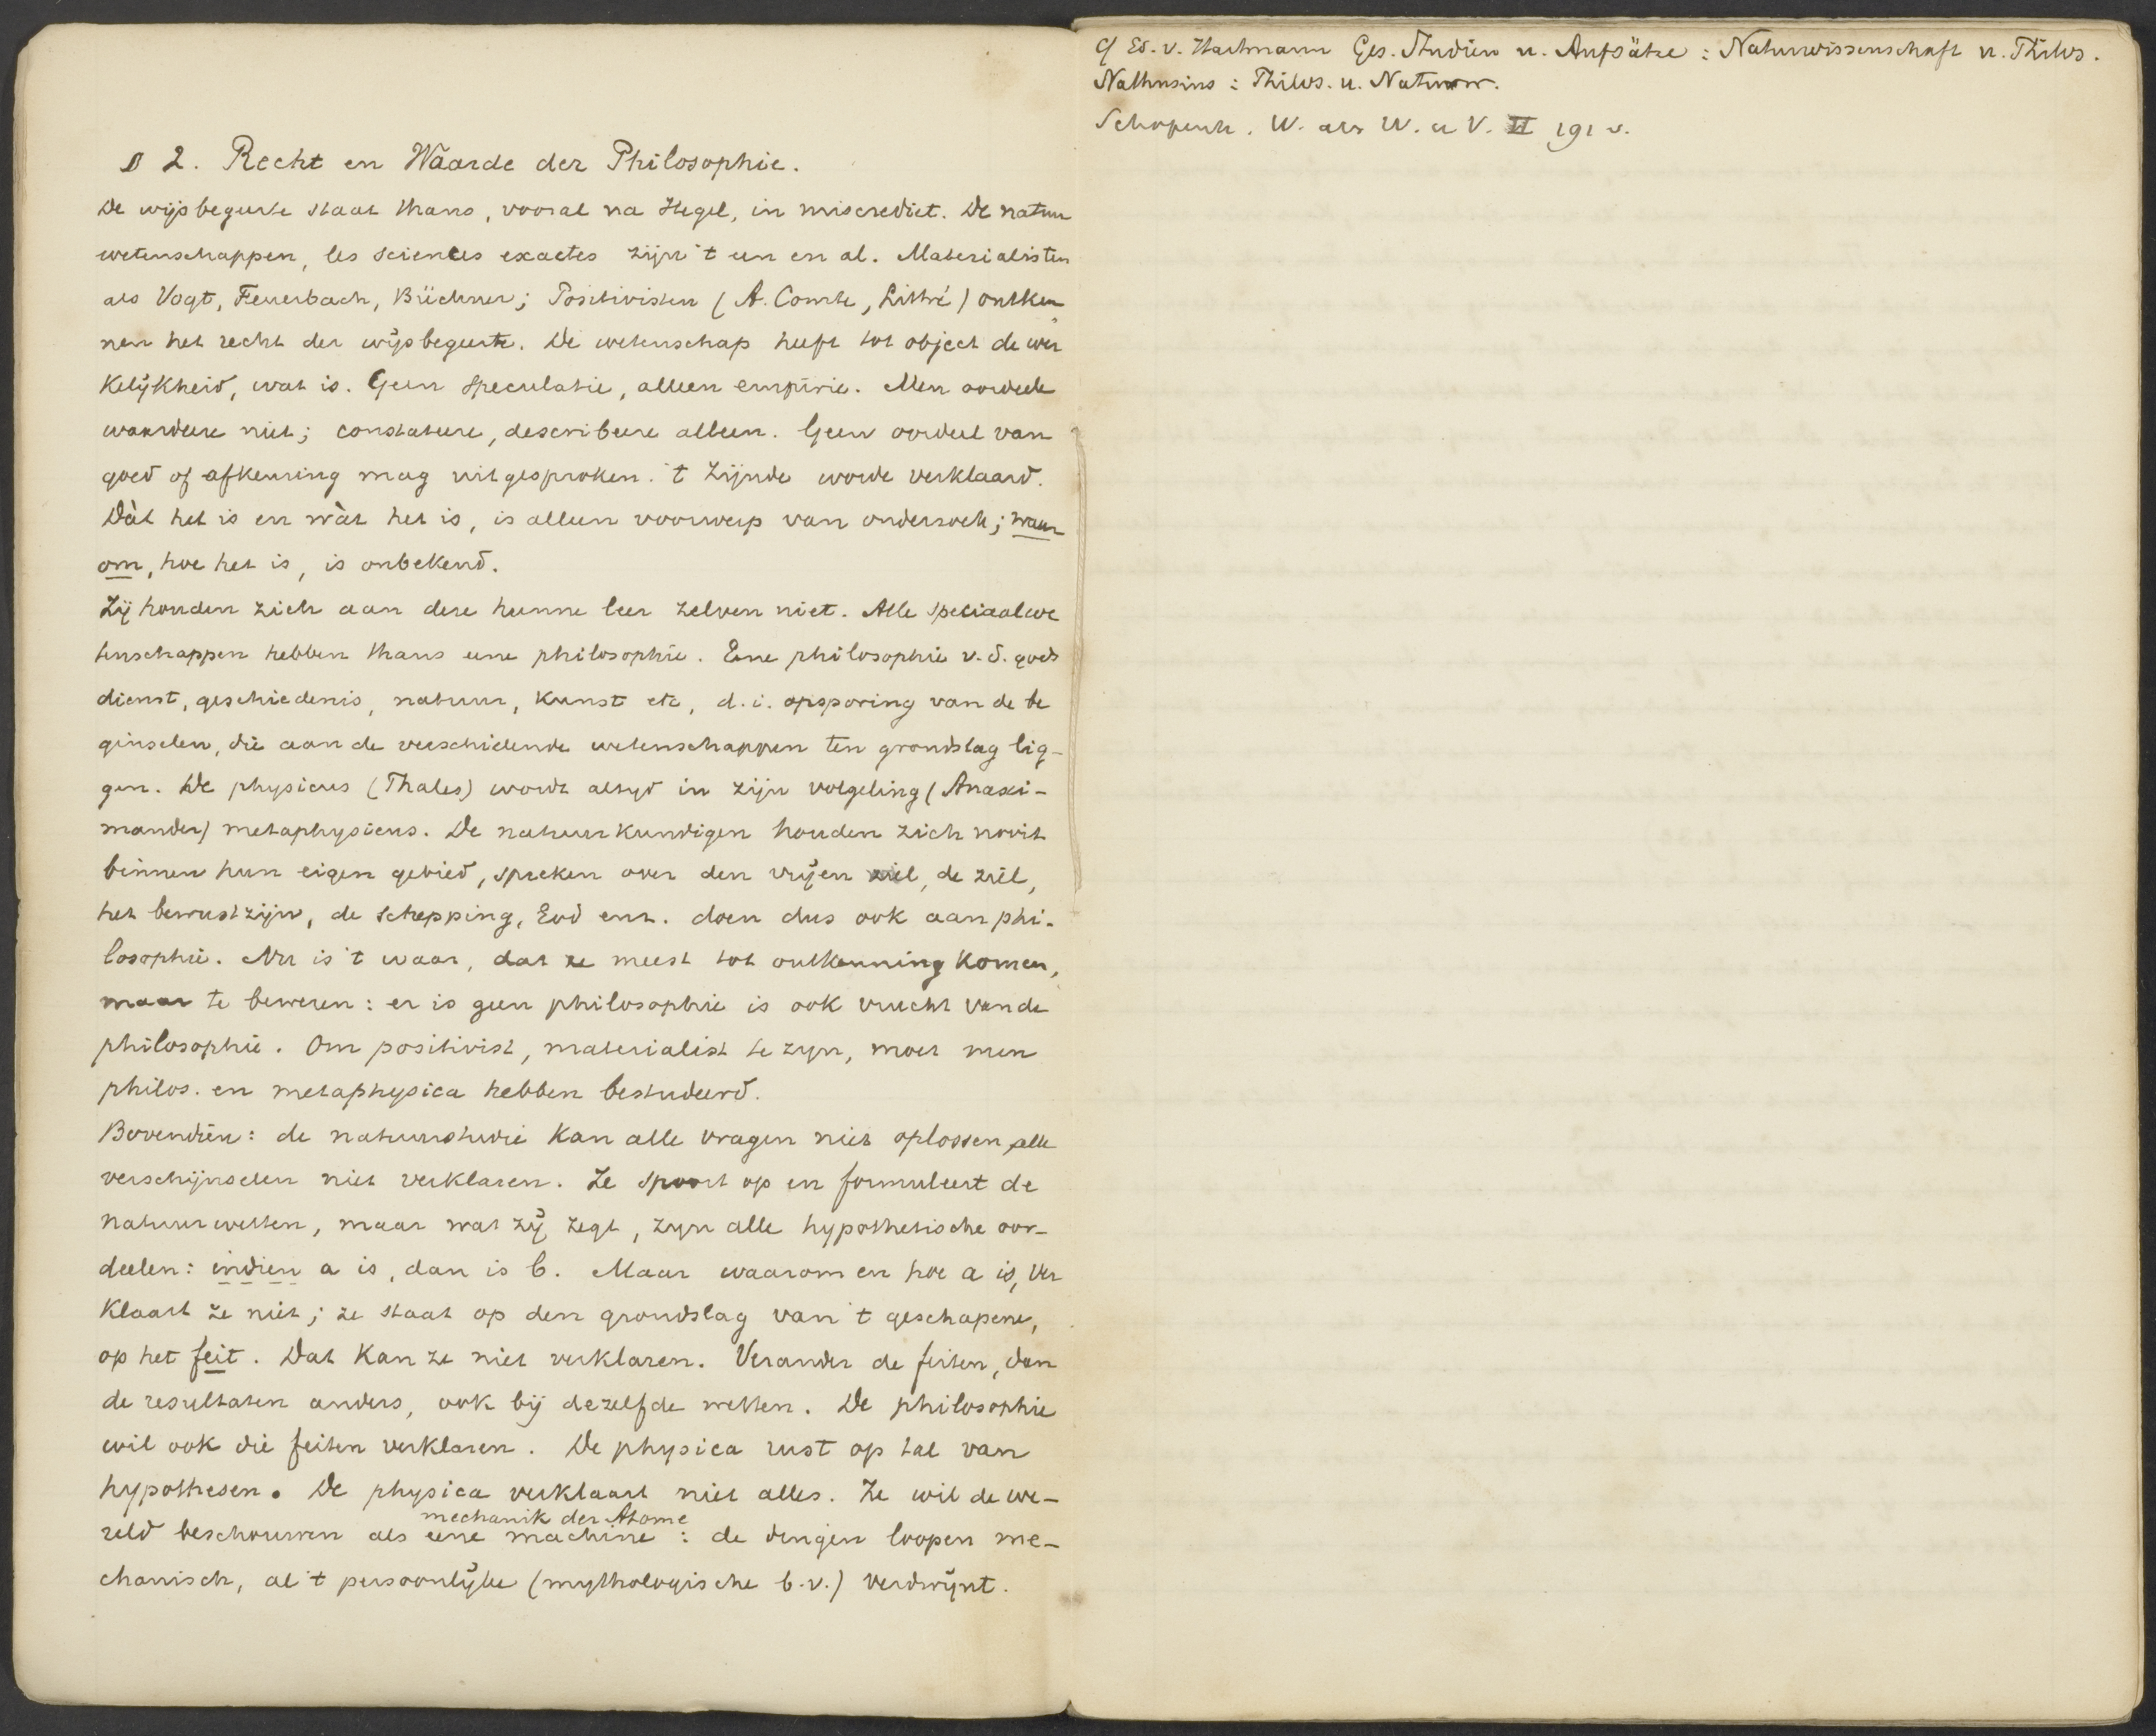 § 2. Recht en Waarde der Philosophie.
De wijsbegeerte staat thans, vooral na Hegel, in miscrediet. De natuur
wetenschappen, les sciences exactes zijn 't een en al. Materialisten
als Vogt, Feuerbach, Büchner; Positivisten (A. Comte, Littré) ontken
nen het recht der wijsbegeerte. De wetenschap heeft tot object de wer
kelijkheid, wat is. Geen speculatie, alleen empirie. Men oordeele
waardeere niet; constateere, describeere alleen. Geen oordeel van
goed of afkeuring mag uitgesproken. 't Zijnde worde verklaard.
Dàt het is en wàt het is, is alleen voorwerp van onderzoek; waar
om, hoe het is, is onbekend.
Zij houden zich aan deze hunne leer zelven niet. Alle speciaalwe
tenschappen hebben thans eene philosophie. Eene philosophie v.d. gods
dienst, geschiedenis, natuur, kunst etc, d.i. opsporing van de be
ginselen, die aan de verschillende wetenschappen ten grondslag lig-
gen. De physicus (Thales) wordt altijd in zijn volgeling (Anaxi-
mander) metaphysicus. De natuurkundigen houden zich nooit
binnen hun eigen gebied, spreken over den vrijen wil, de ziel,
het bewustzijn, de schepping, God enz. doen dus ook aan phi-
losophie. Nu is 't waar, dat ze meest tot ontkenning komen,
maar te beweren: er is geen philosophie is ook vrucht van de
philosophie. Om positivist, materialist te zijn, moet men
philos. en metaphysica hebben bestudeerd.
Bovendien: de natuurstudie kan alle vragen niet oplossen, alle
verschijnselen niet verklaren. Ze spoort op en formuleert de
natuurwetten, maar wat zij zegt, zijn alle hypothetische oor-
deelen: indien a is, dan is b. Maar waarom en hoe a is, ver
klaart ze niet; ze staat op den grondslag van 't geschapene,
op het feit. Dat kan ze niet verklaren. Verander de feiten, dan
de resultaten anders, ook bij dezelfde wetten. De philosophie
wil ook die feiten verklaren. De physica rust op tal van
hypothesen. De physica verklaart niet alles. Ze wil de we-
mechanik der Atome
reld beschouwen als eene machine: de dingen loopen me-
chanisch, al 't persoonlijke (mythologische b.v.) verdwijnt.
cf Ed. v. Hartmann Ges. Studien u. Aufsätze: Naturwissenschaft u. Philos.
Nathusius: Philos. u. Naturw.
Schopenh. W. als W. u V. II 191 v.